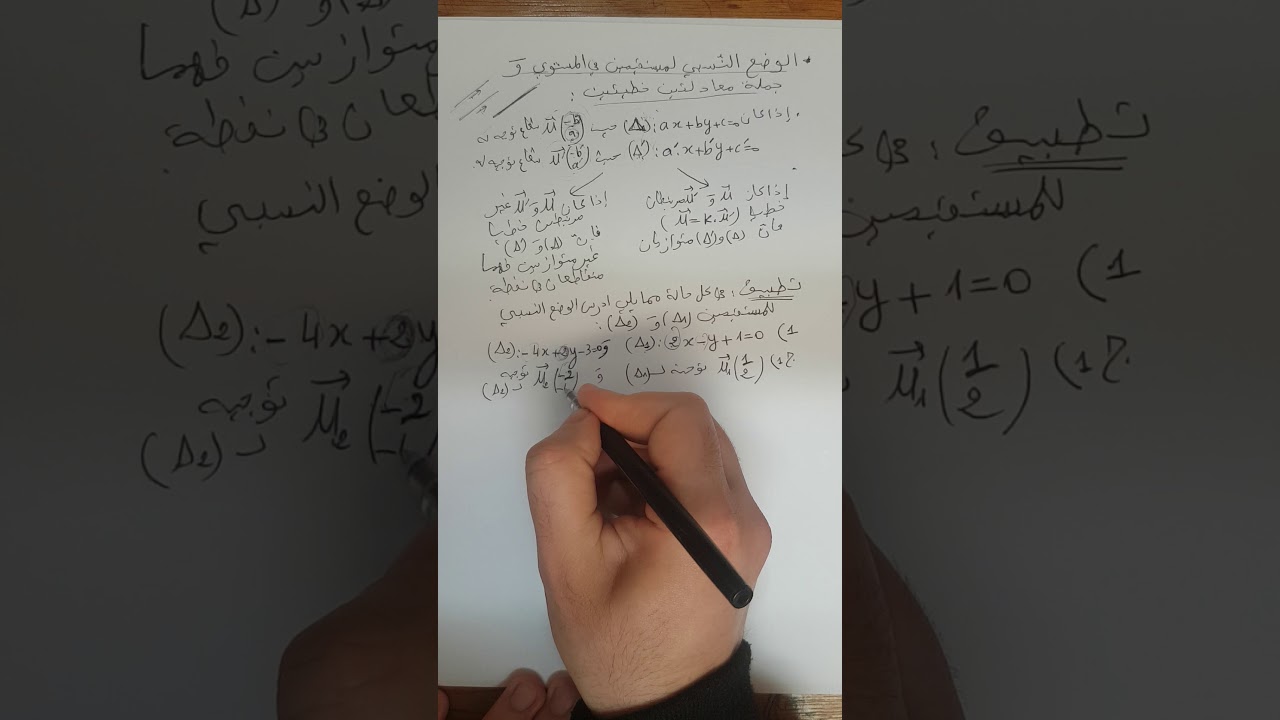 الوضع النسبي لمستقيمين في المستوي و
جملة معادلتين خطيتين :
إذا كان (Δ): ax+by+c=0 حيث u⃗(-b a) شعاع توجيه له
(Δ'): a'x+b'y+c'=0 حيث u⃗'(-b' a') شعاع توجيه له
إذا كان u⃗ و u⃗' مرتبطان
خطيا (u⃗=k.u⃗')
فإن (Δ) و (Δ') متوازيان
إذا كان u⃗ و u⃗' غير
مرتبطين خطيا
فإن (Δ) و (Δ')
غير متوازيين فهما
متقاطعان في نقطة.
تطبيق : في كل حالة ممايلي ادرس الوضع النسبي
للمستقيمين (Δ1) و (Δ2) :
1) (Δ1): 2x-y+1=0 و (Δ2): -4x+2y-3=0
ج1) u⃗1(1 2) توجيه لـ (Δ1) و u⃗2(-2 توجيه لـ (Δ2)